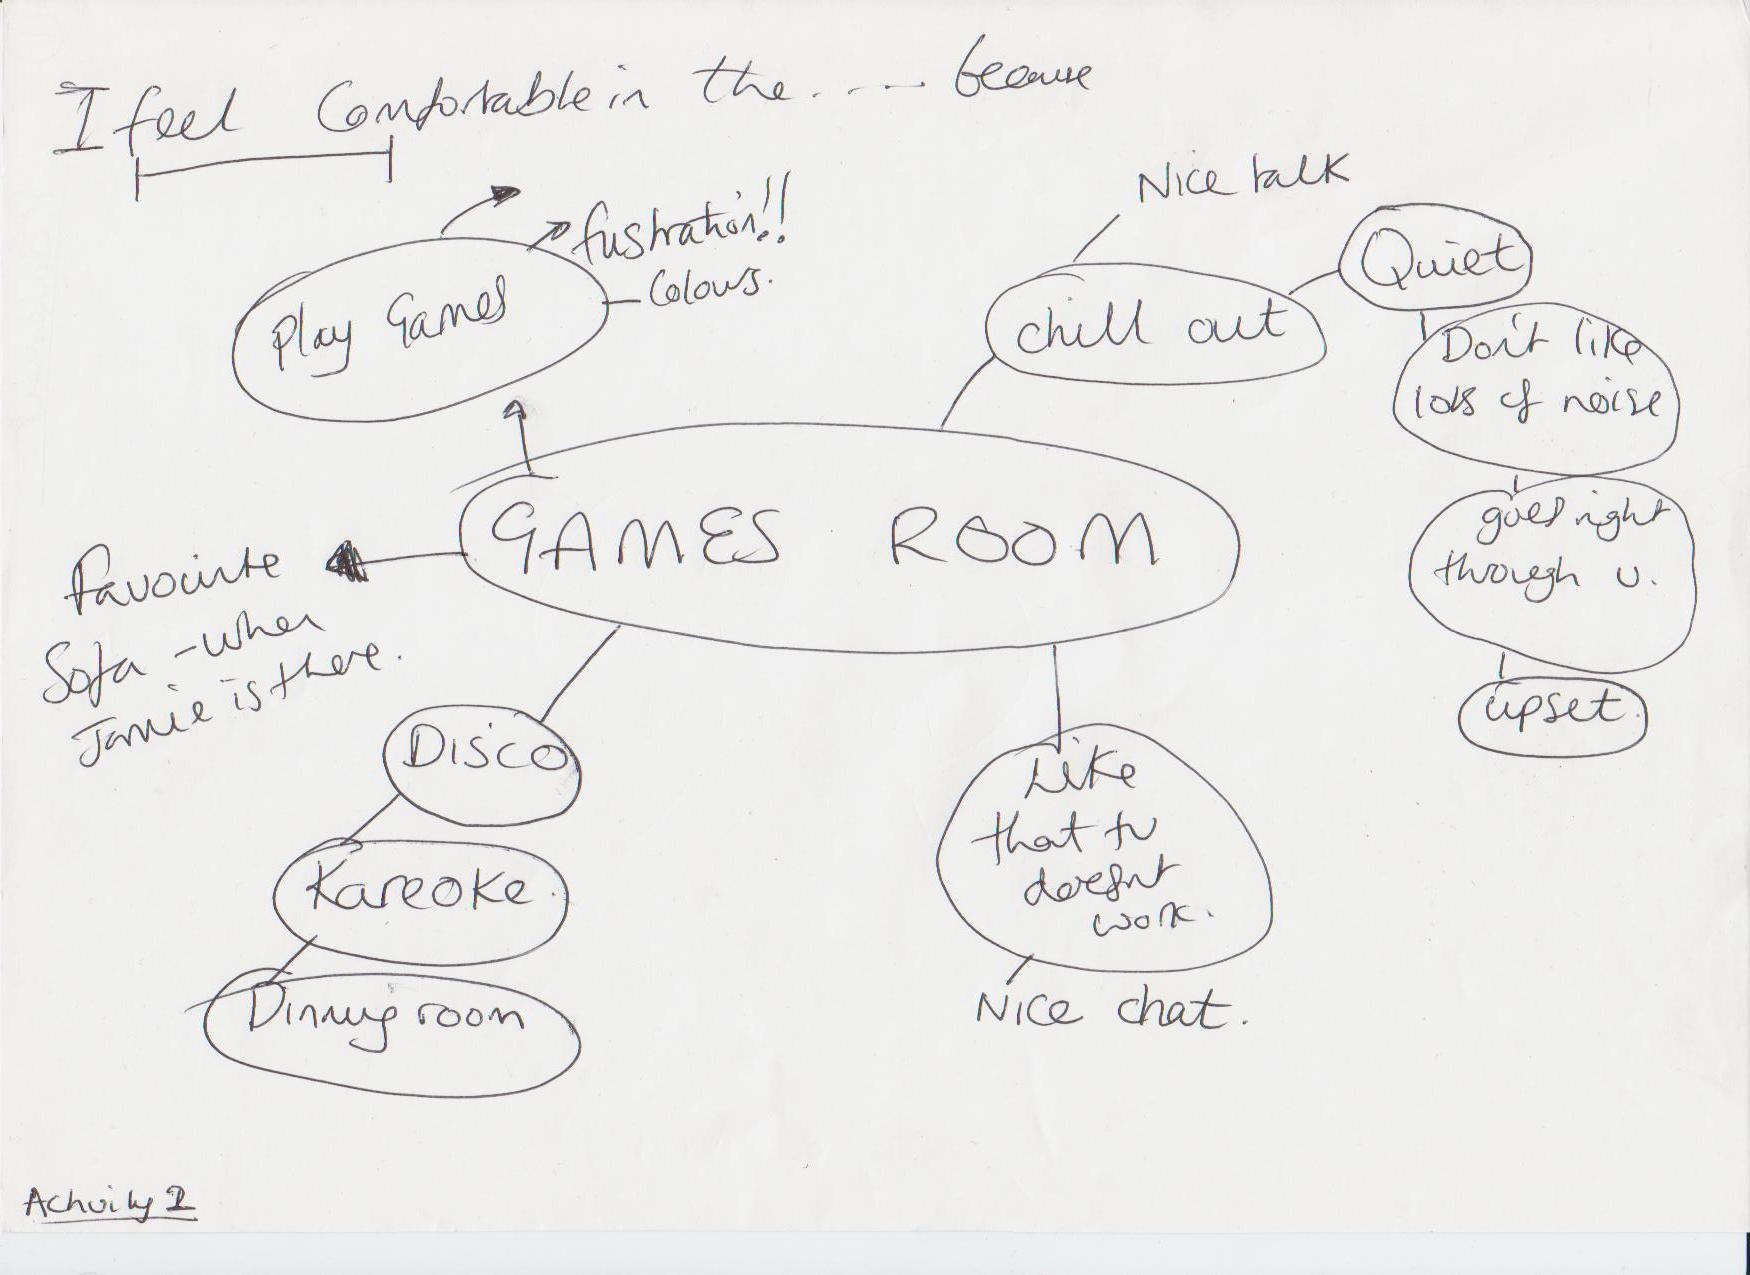 I feel Comfortable in the..... because
Nice talk
fustration!!
Colours.
Play Games
chill out
Quiet
Don't like
lots of noise
goes right
through u.
upset.
GAMES ROOM
Favourite
Sofa - when
Jamie is there.
Disco
Kareoke.
Dinning room
Like
that tv
doesnt
work.
Nice chat.
Activity 1